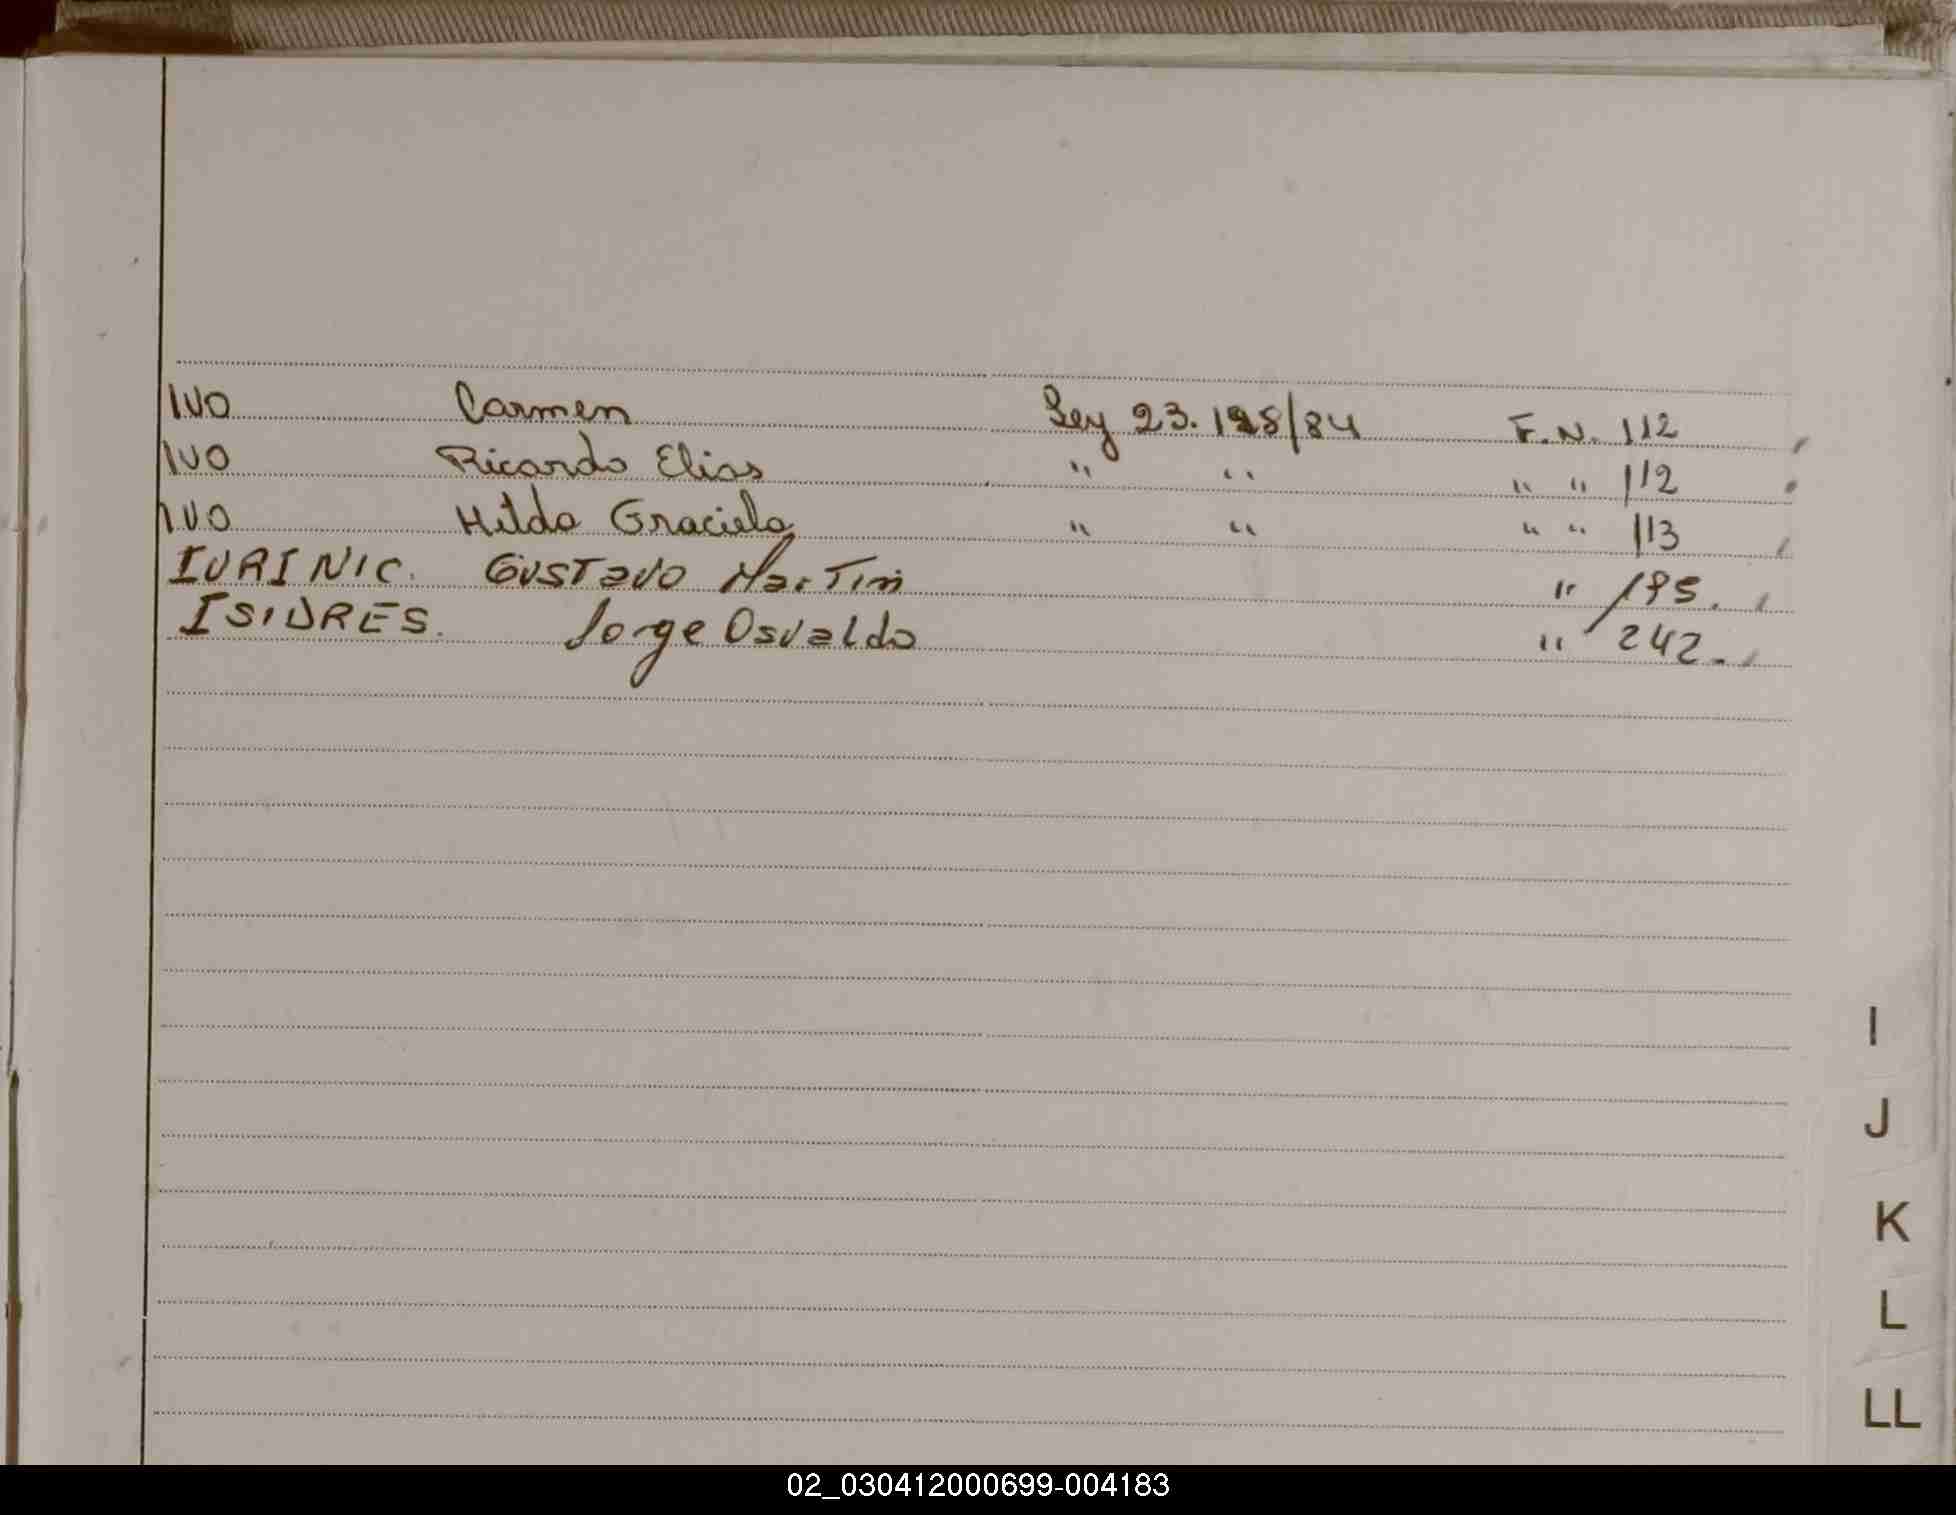 IVO Carmen Ley 23.128/84 F.N. 112
IVO Ricardo Elias " " " " 112
IVO Hilda Graciela " " " " 113
IURINIC. GUSTavo MarTin " 195.
ISIDRES. Jorge Osvaldo " 242.
I
J
K
L
LL
02_030412000699-004183